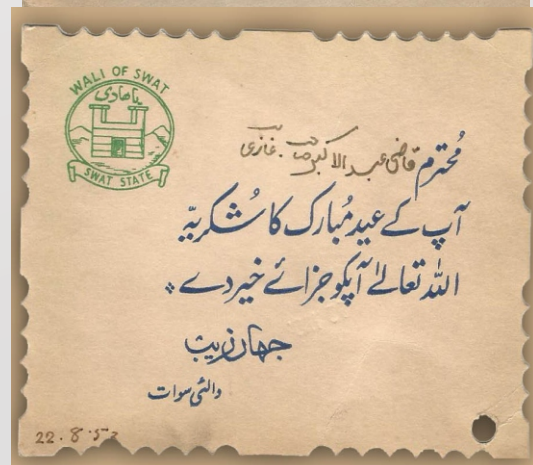 WALI OF SWAT
یا ھادی
SWAT STATE
مُحترم قاضی عبدالاکبر صاحب غازی
آپ کے عید مُبارک کا شُکریہ
اللہ تعالےٰ آپکو جزائے خیر دے
جہانزیب
والئی سوات
22.8.53